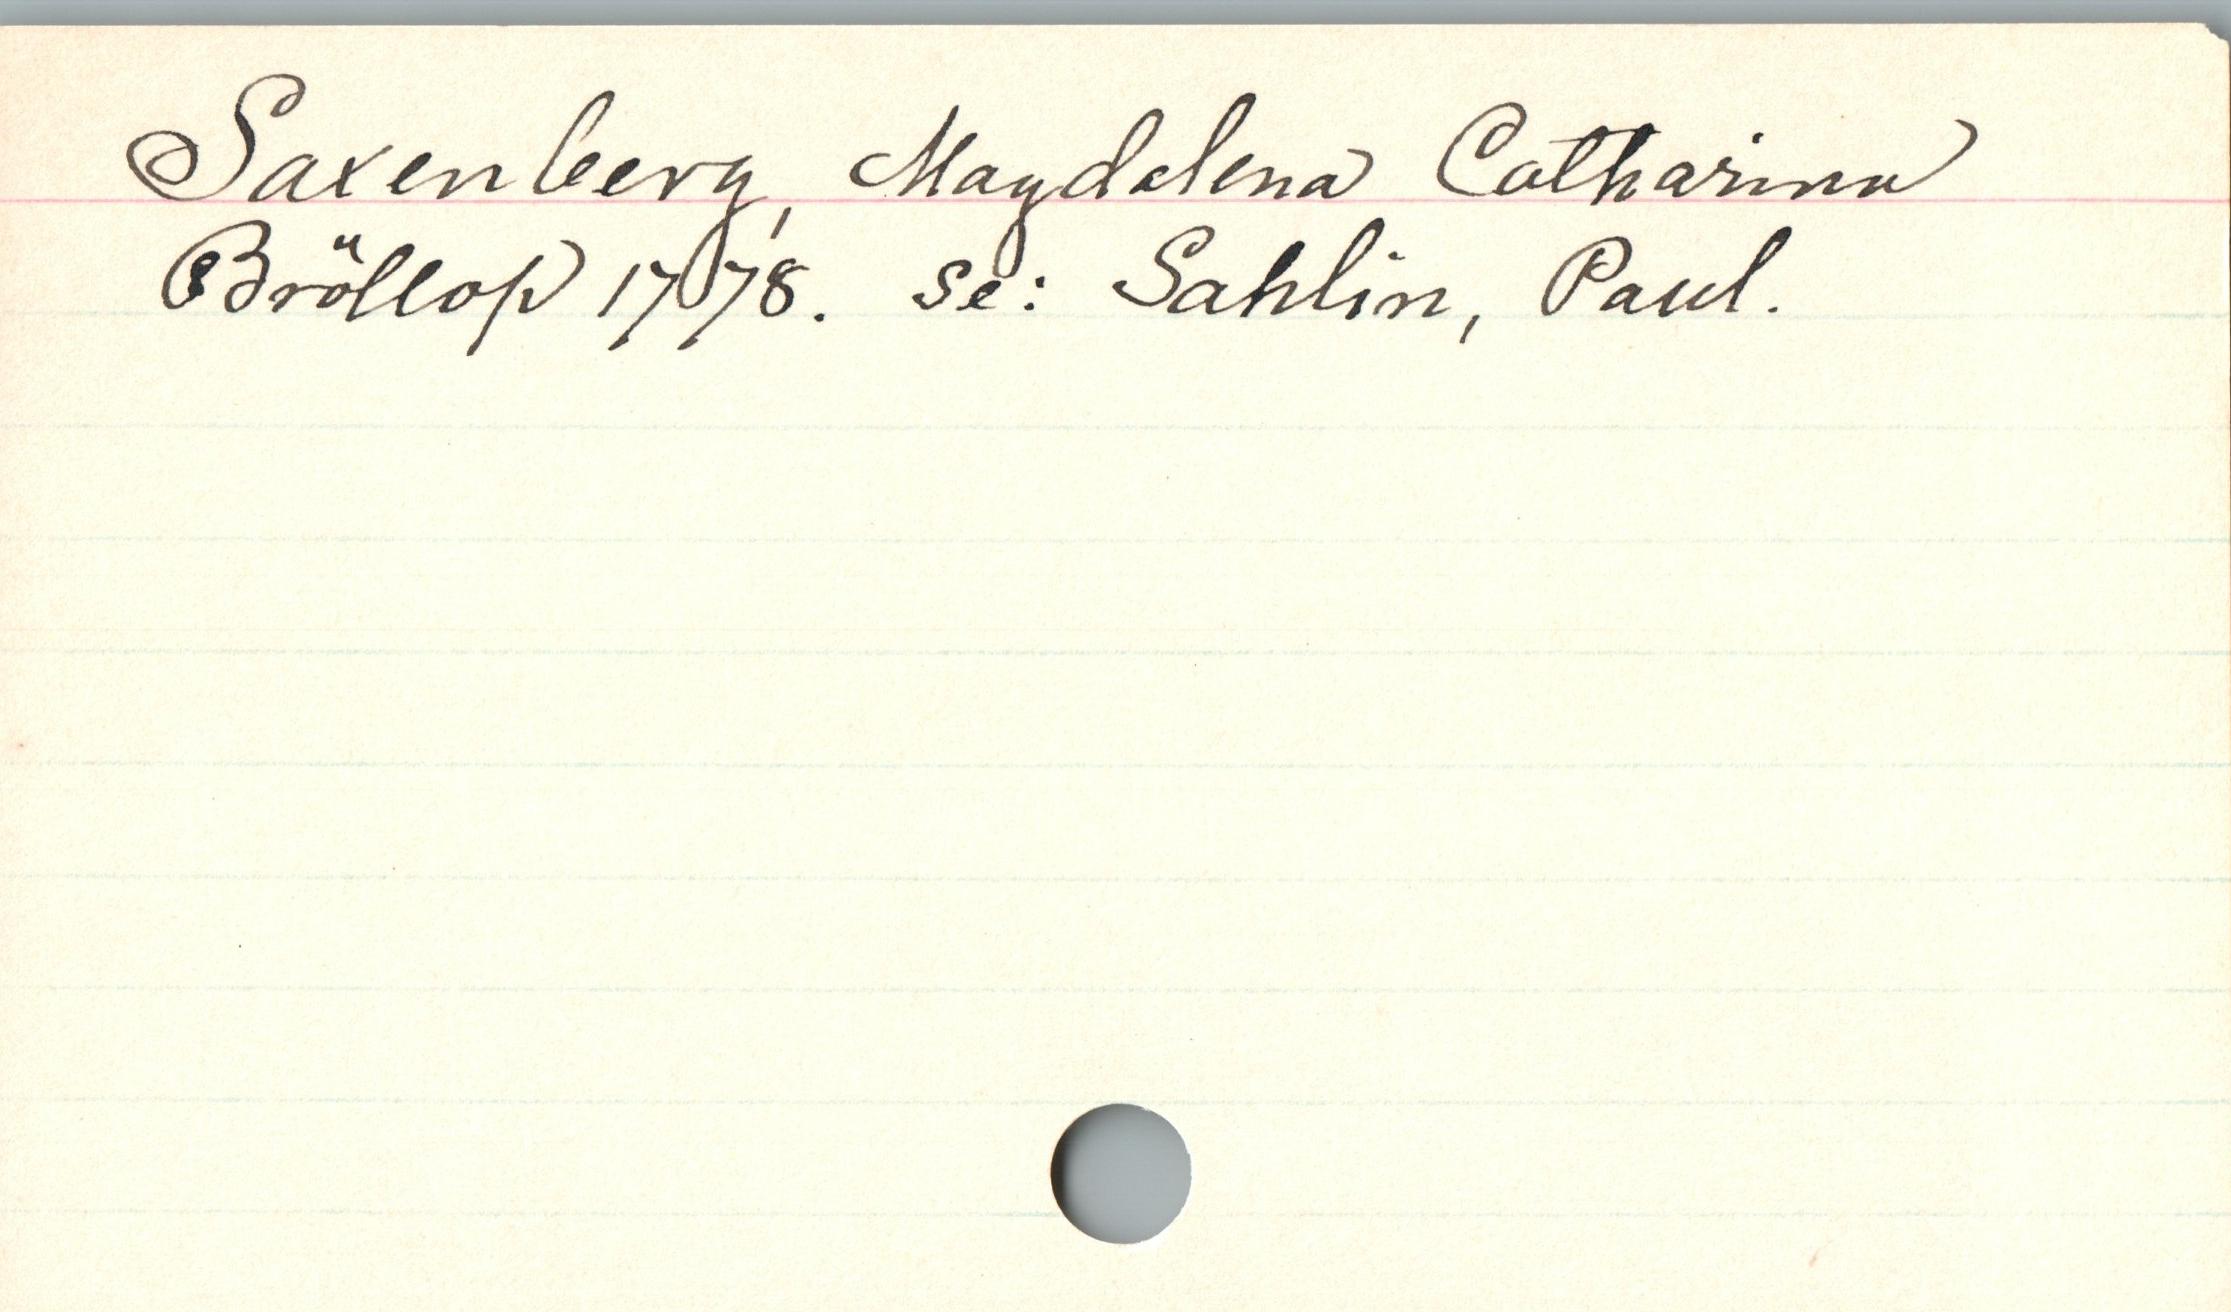 Saxenberg, Magdalena Catharina
Bröllop 1778. se: Sahlin, Paul.